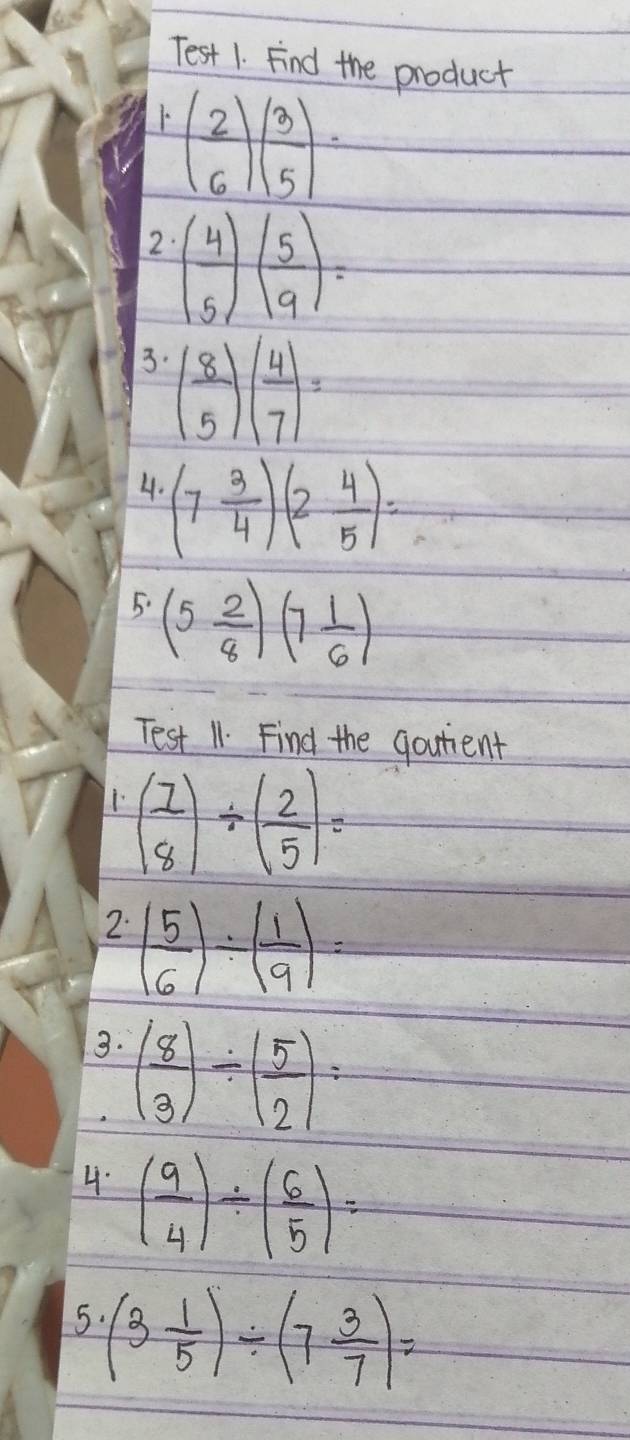 Test I. Find the product
1. (2/6)(3/5) =
2. (4/5)(5/9) =
3. (8/5)(4/7) =
4. (7 3/4)(2 4/5) =
5. (5 2/8)(7 1/6)
Test II. Find the qoutient
1. (7/8) ÷ (2/5) =
2. (5/6) ÷ (1/9) =
3. (8/3) ÷ (5/2) =
4. (9/4) ÷ (6/5) =
5. (3 1/5) ÷ (7 3/7) =